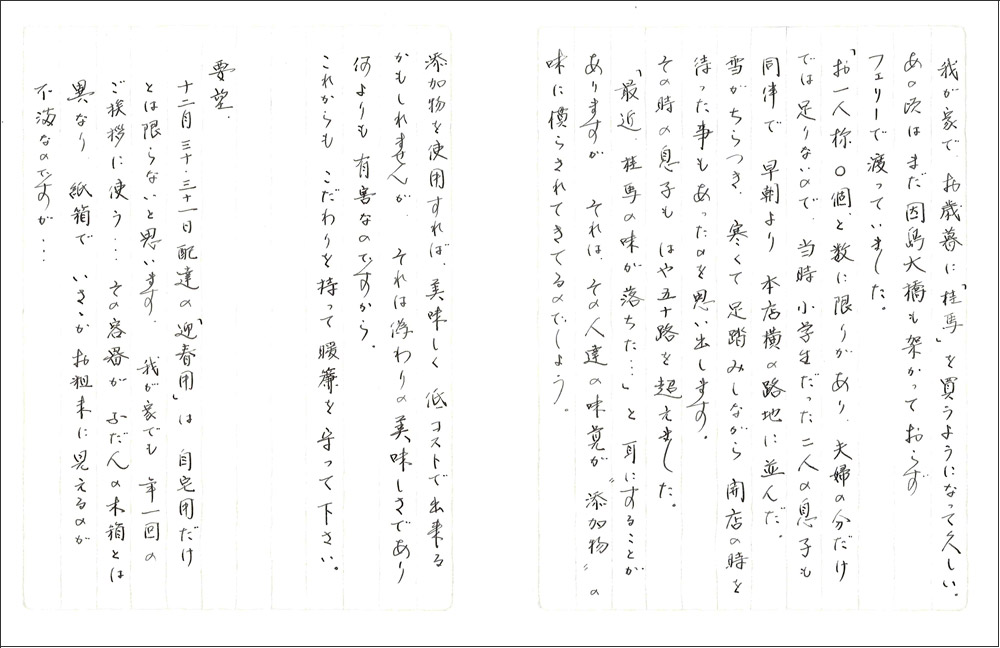 我が家で、お歳暮に「桂馬」を買うようになって久しい。
あの頃は まだ因島大橋も架かっておらず
フェリーで渡っていました。
「お一人様 〇個」と数に限りがあり、夫婦の分だけ
では足りないので、当時 小学生だった二人の息子も
同伴で 早朝より 本店横の路地に並んだ。
雪がちらつき、寒くて足踏みしながら 開店の時を
待った事もあったのを思い出します。
その時の息子も はや五十路を超えました。
「最近、桂馬の味が落ちた…」と耳にすることが
ありますが それは、その人達の味覚が〝添加物〟の
味に慣らされてきてるのでしょう。
添加物を使用すれば、美味しく 低コストで出来る
かもしれませんが、それは偽わりの美味しさであり
何よりも 有害なのですから。
これからも こだわりを持って 暖簾を守って下さい。
要望.
十二月 三十・三十一日配達の「迎春用」は 自宅用だけ
とは限らないと思います。 我が家でも 年一回の
ご挨拶に使う… その容器が ふだんの木箱とは
異なり 紙箱で いささかお粗末に見えるのが
不満なのですが…